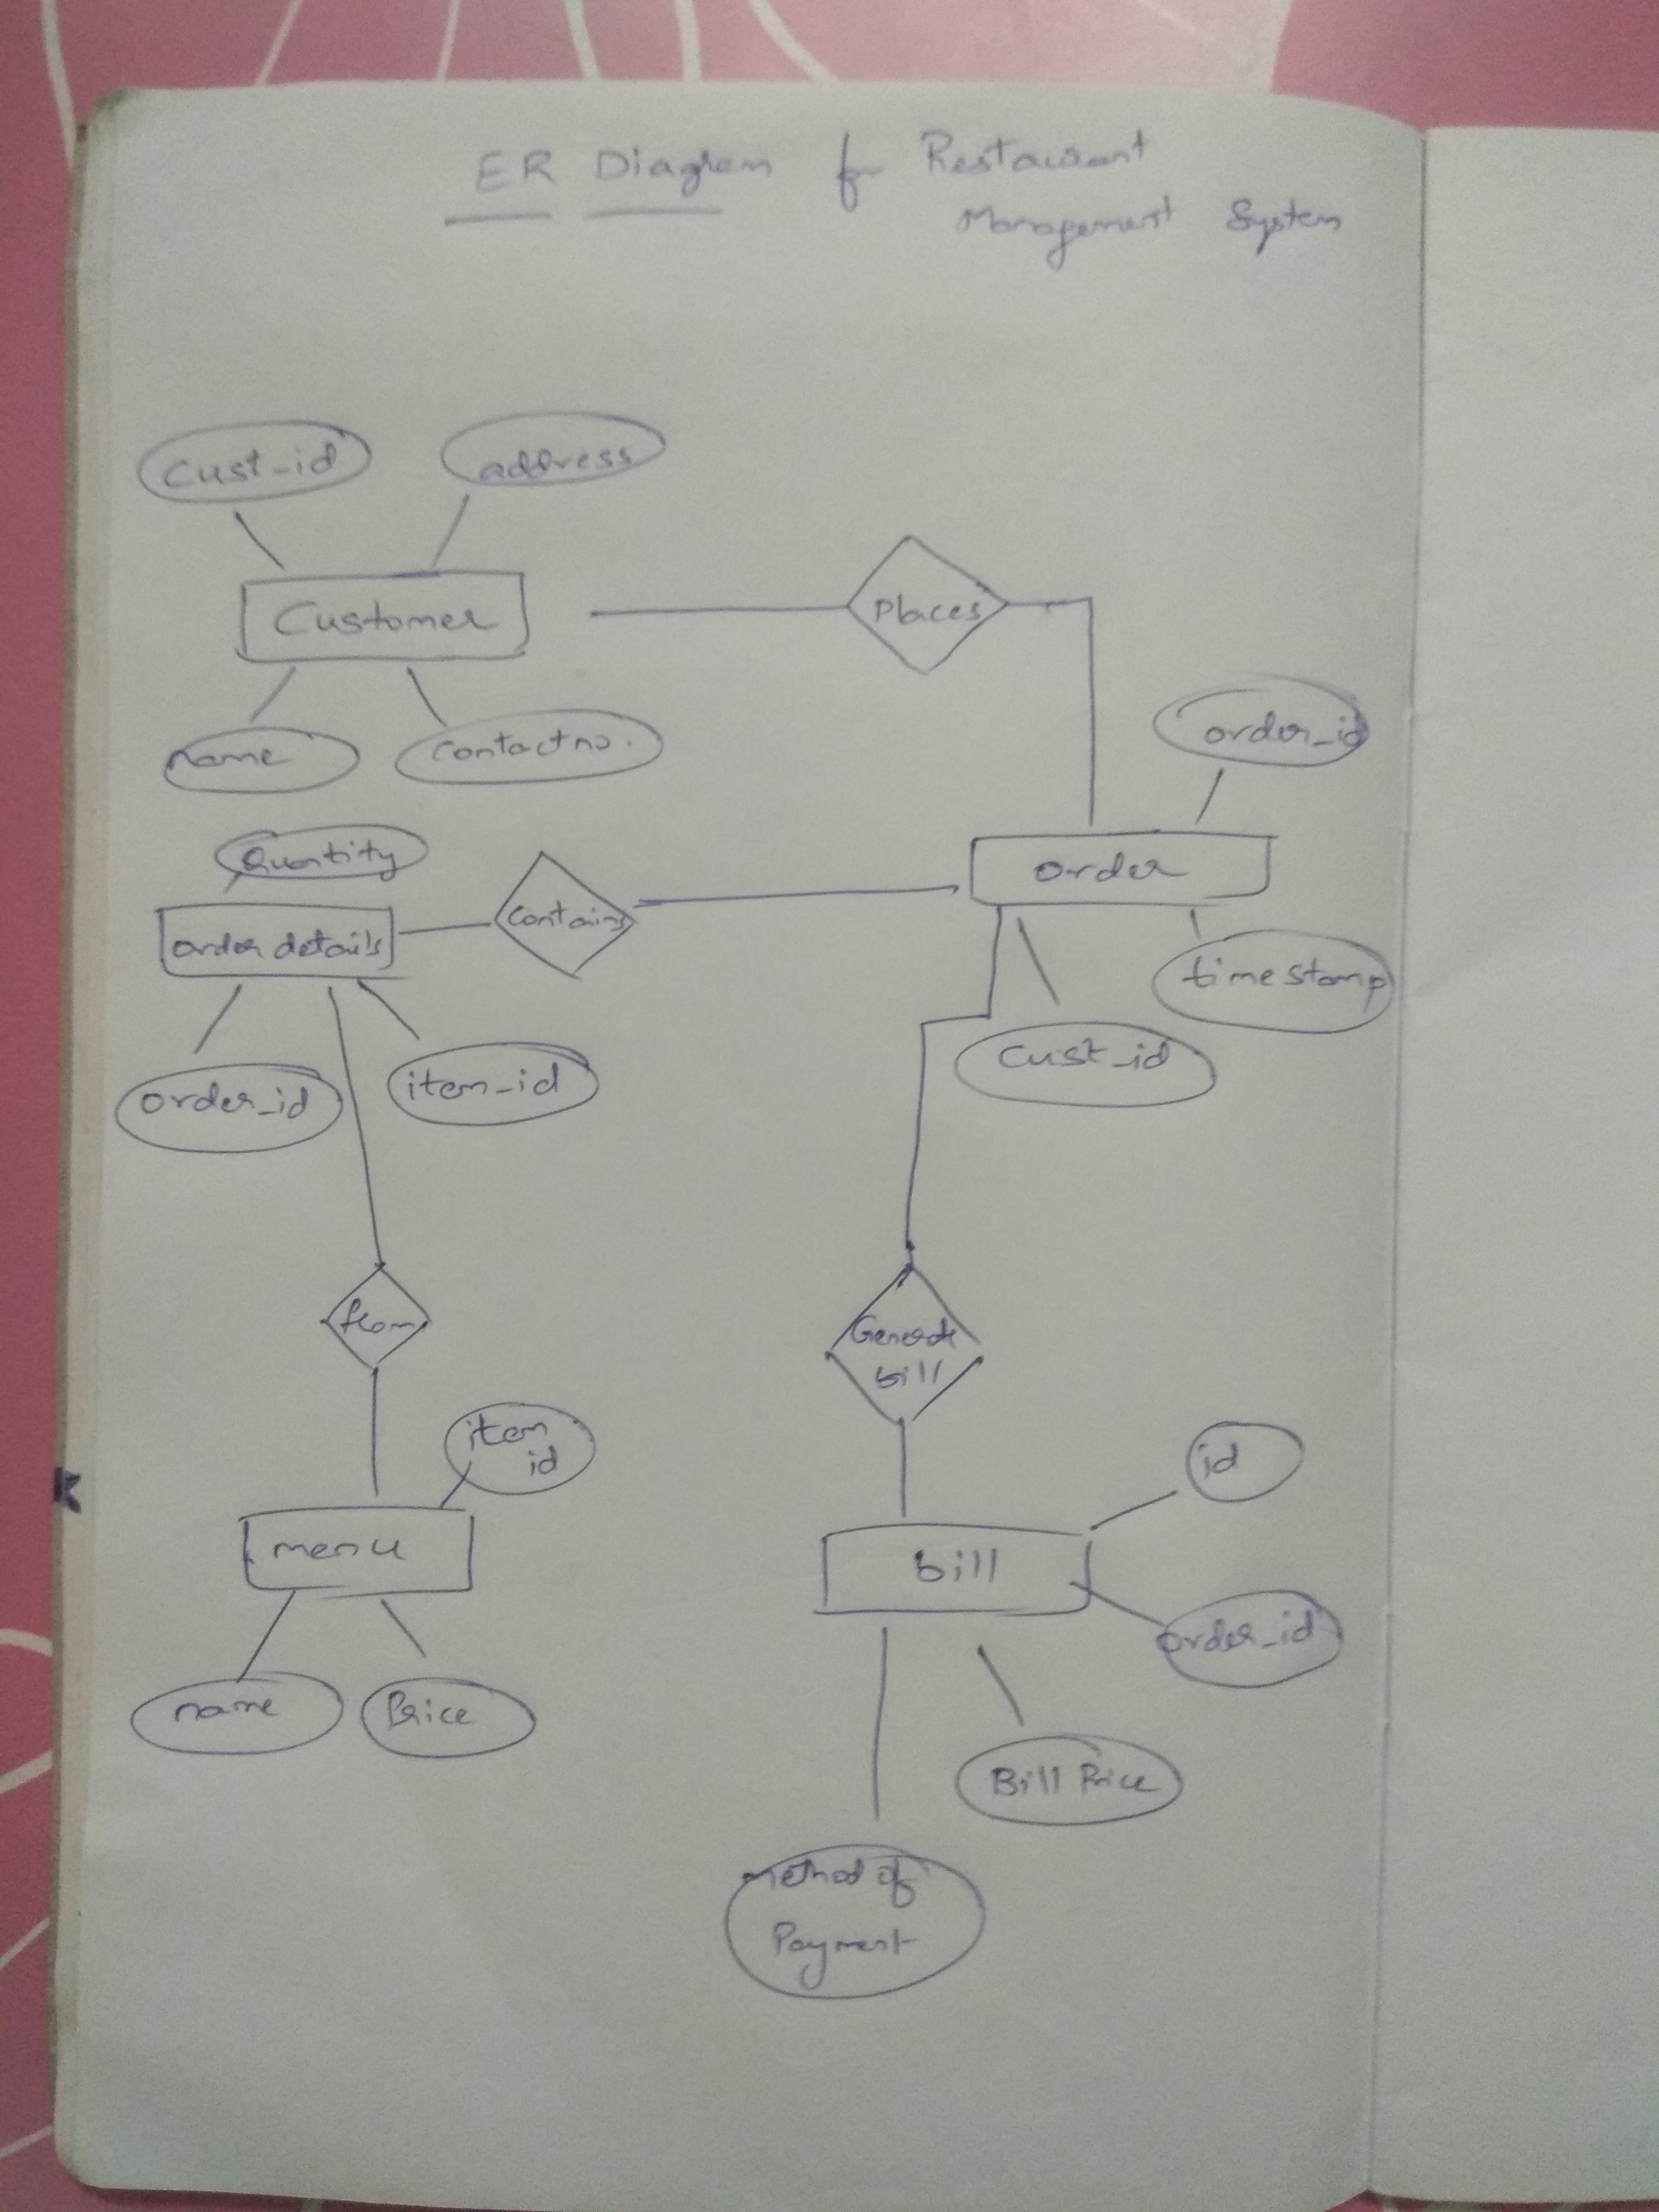 ER Diagram for Restaurant
Management System
Cust_id
address
Customer
Places
name
contact no.
order_id
Quantity
order
order details
Contains
timestamp
order_id
item_id
Cust_id
from
Generate
bill
item
id
id
menu
bill
order_id
name
Price
Bill Price
method of
Payment